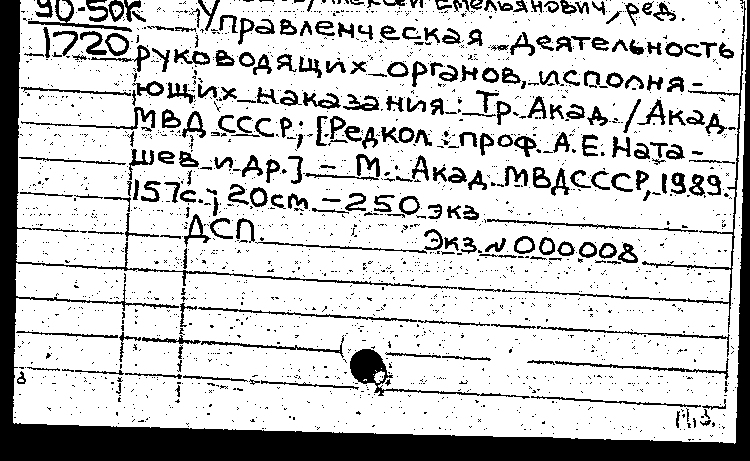 90-50К Алексей Емельянович, ред.
1720 Управленческая деятельность
руководящих органов, исполня-
ющих наказания : Тр. Акад. / Акад.
МВД СССР; [Редкол.: проф. А.Е. Ната-
шев и др.] - М.: Акад. МВД СССР, 1989.-
157с.; 20см. - 250 экз.
ДСП. Экз. № 000008.